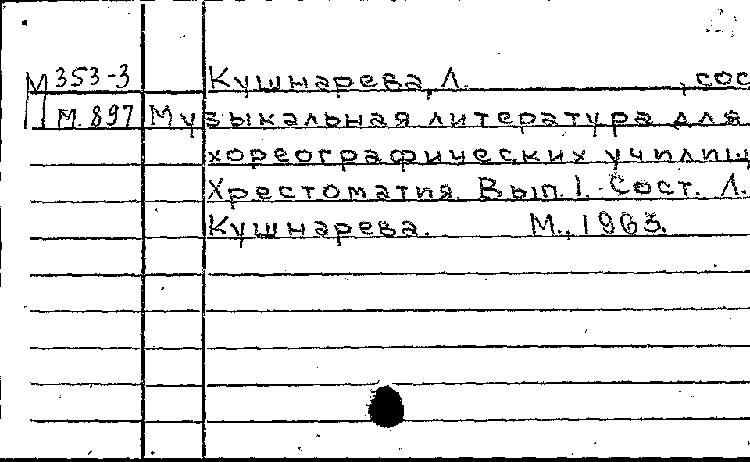 М 353-3 Кушнарева, Л. , сос
М. 897 Музыкальная литература для
хореографических училищ
Хрестоматия. Вып. 1. Сост. Л.
Кушнарева. М., 1963.